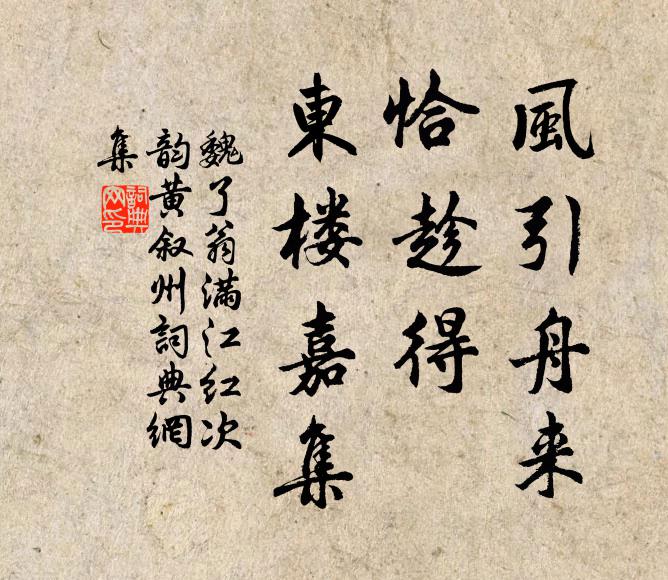 風引舟来
恰趁得
東楼嘉集
魏了翁滿江红次
韵黄叙州詞典網
集
詞典
网印